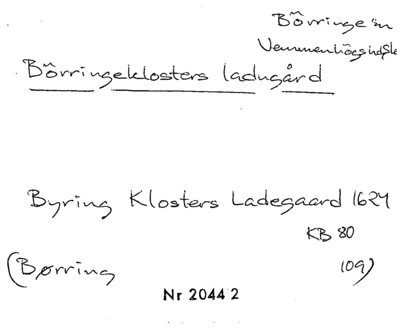 Börringe sn
Vemmenhögs hd, Sk
Börringeklosters ladugård
Byring Klosters Ladegaard 1624
KB 80
(Børring 109)
Nr 2044 2